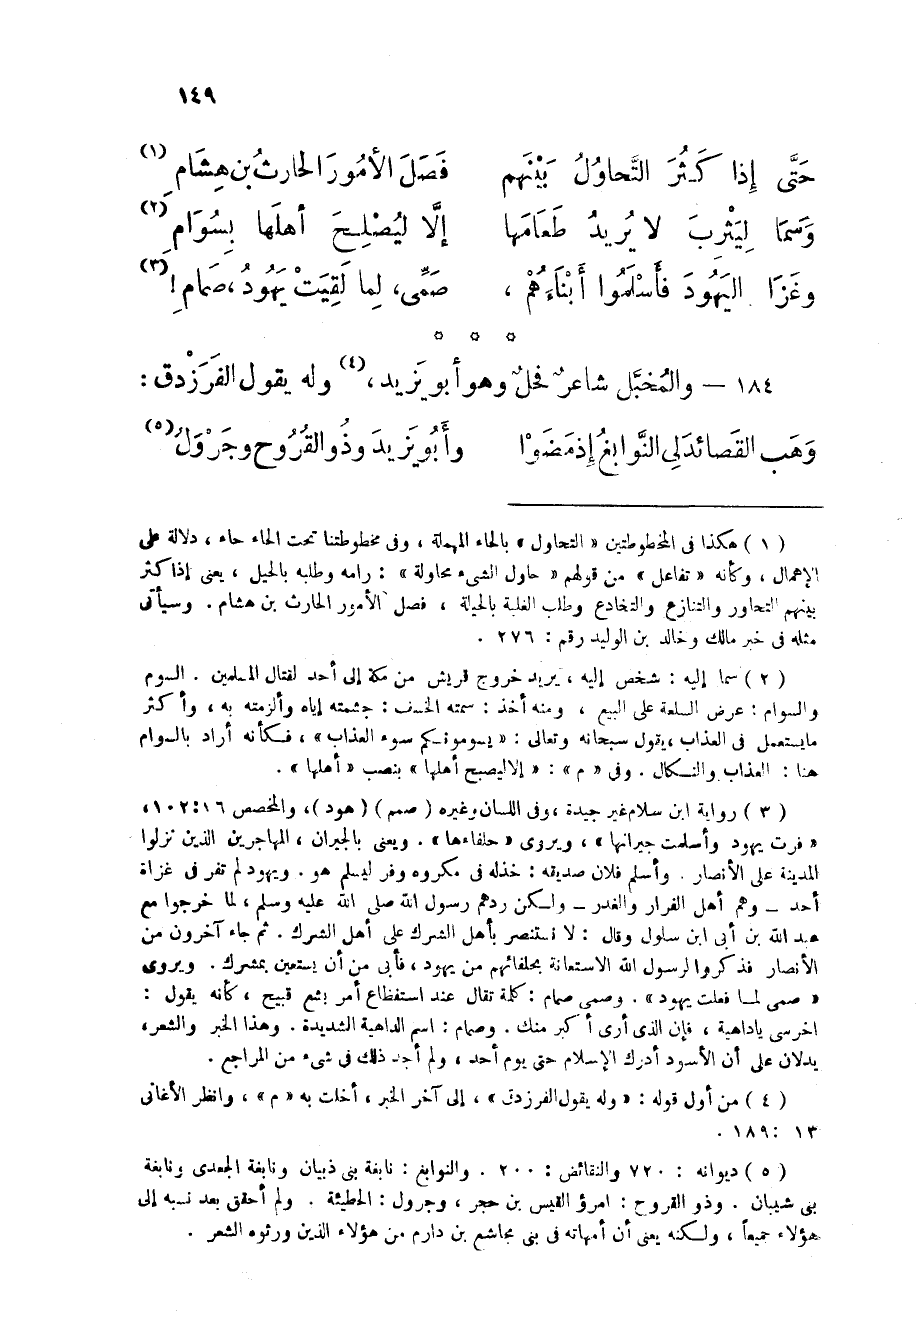 ١٤٩
حَتَّى إِذا كَثُرَ التَّحاوُلُ بَيْنَهم فَصَلَ الأُمُورَ الحارثُ بن هِشَامِ (١)
وَسَمَا لِيَثْرِبَ لا يُرِيدُ طَعَامَها إلَّا لِيُصْلِحَ أهلَها بِسُوَامِ (٢)
وغَزَا اليَهُودَ فأَسْلَمُوا أَبْنَاءَهُمْ ، صَمِّى، لِما لَقِيَتْ يَهُودُ، صَمامِ! (٣)
☼ ☼ ☼
١٨٤ — والمُخبَّل شاعرٌ فحلٌ وهو أبو يَزيد، (٤) وله يقول الفَرَزْدق :
وَهَب القَصائدَ لِي النَّوابغُ إذ مَضَوْا وأَبُو يَزِيدَ وذُو القُرُوح وجَرْوَلُ (٥)
(١) هكذا فى المخطوطتين « التحاول » بالحاء المهملة ، وفى مخطوطتنا تحت الحاء حاء ، دلالة على
الإهمال ، وكأنه « تفاعل » من قولهم « حاول الشىء محاولة » : رامه وطلبه بالحيل ، يعنى إذا كثر
بينهم التحاور والتنازع والتخادع وطلب الغلبة بالحيلة ، فصل الأمور الحارث بن هشام . وسيأتى
مثله فى خبر مالك وخالد بن الوليد رقم : ٢٧٦ .
(٢) سما إليه : شخص إليه ، يريد خروج قريش من مكة إلى أحد لقتال المسلمين . السوم
والسوام : عرض السلعة على البيع ، ومنه أخذ : سمته الخسف : جشمته إياه وألزمته به ، وأكثر
مايستعمل فى العذاب ،يقول سبحانه وتعالى : « يسومونكم سوء العذاب » ، فكأنه أراد بالسوام
هنا : العذاب والنكال . وفى « م » : « إلاليصبح أهلها » بنصب « أهلها » .
(٣) رواية ابن سلام غير جيدة ،وفى اللسان وغيره ( صمم ) ( هود )، والمخصص ١٦ :١٠٢،
« فرت يهود وأسلمت جيرانها » ، ويروى « حلفاءها » . ويعنى بالجيران ، المهاجرين الذين نزلوا
المدينة على الأنصار . وأسلم فلان صديقه : خذله فى مكروه وفر ليسلم هو . ويهود لم تفر فى غزاة
أحد — وهم أهل الفرار والغدر — ولكن ردهم رسول الله صلى الله عليه وسلم ، لما خرجوا مع
عبد الله بن أبى ابن سلول وقال : لا نستنصر بأهل الشرك على أهل الشرك . ثم جاء آخرون من
الأنصار فذكروا لرسول الله الاستعانة بحلفائهم من يهود ، فأبى من أن يستعين بمشرك . ويروى
« صمى لما فعلت يهود » . وصمى صمام : كلمة تقال عند استفظاع أمر بشع قبيح ، كأنه يقول :
اخرسى ياداهية ، فإن الذى أرى أكبر منك . وصمام : اسم الداهية الشديدة . وهذا الخبر والشعر،
يدلان على أن الأسود أدرك الإسلام حتى يوم أحد ، ولم أجد ذلك فى شىء من المراجع .
(٤) من أول قوله : « وله يقول الفرزدق » ، إلى آخر الخبر ، أخلت به « م » ، وانظر الأغانى
١٣ :١٨٩ .
(٥) ديوانه : ٧٢٠ والنقائض : ٢٠٠ . والنوابغ : نابغة بنى ذبيان ونابغة الجعدى ونابغة
بنى شيبان . وذو القروح : امرؤ القيس بن حجر ، وجرول : الحطيئة . ولم أحقق بعد نسبه إلى
هؤلاء جميعاً ، ولكنه يعنى أن أمهاته فى بنى مجاشع بن دارم من هؤلاء الذين ورثوه الشعر .